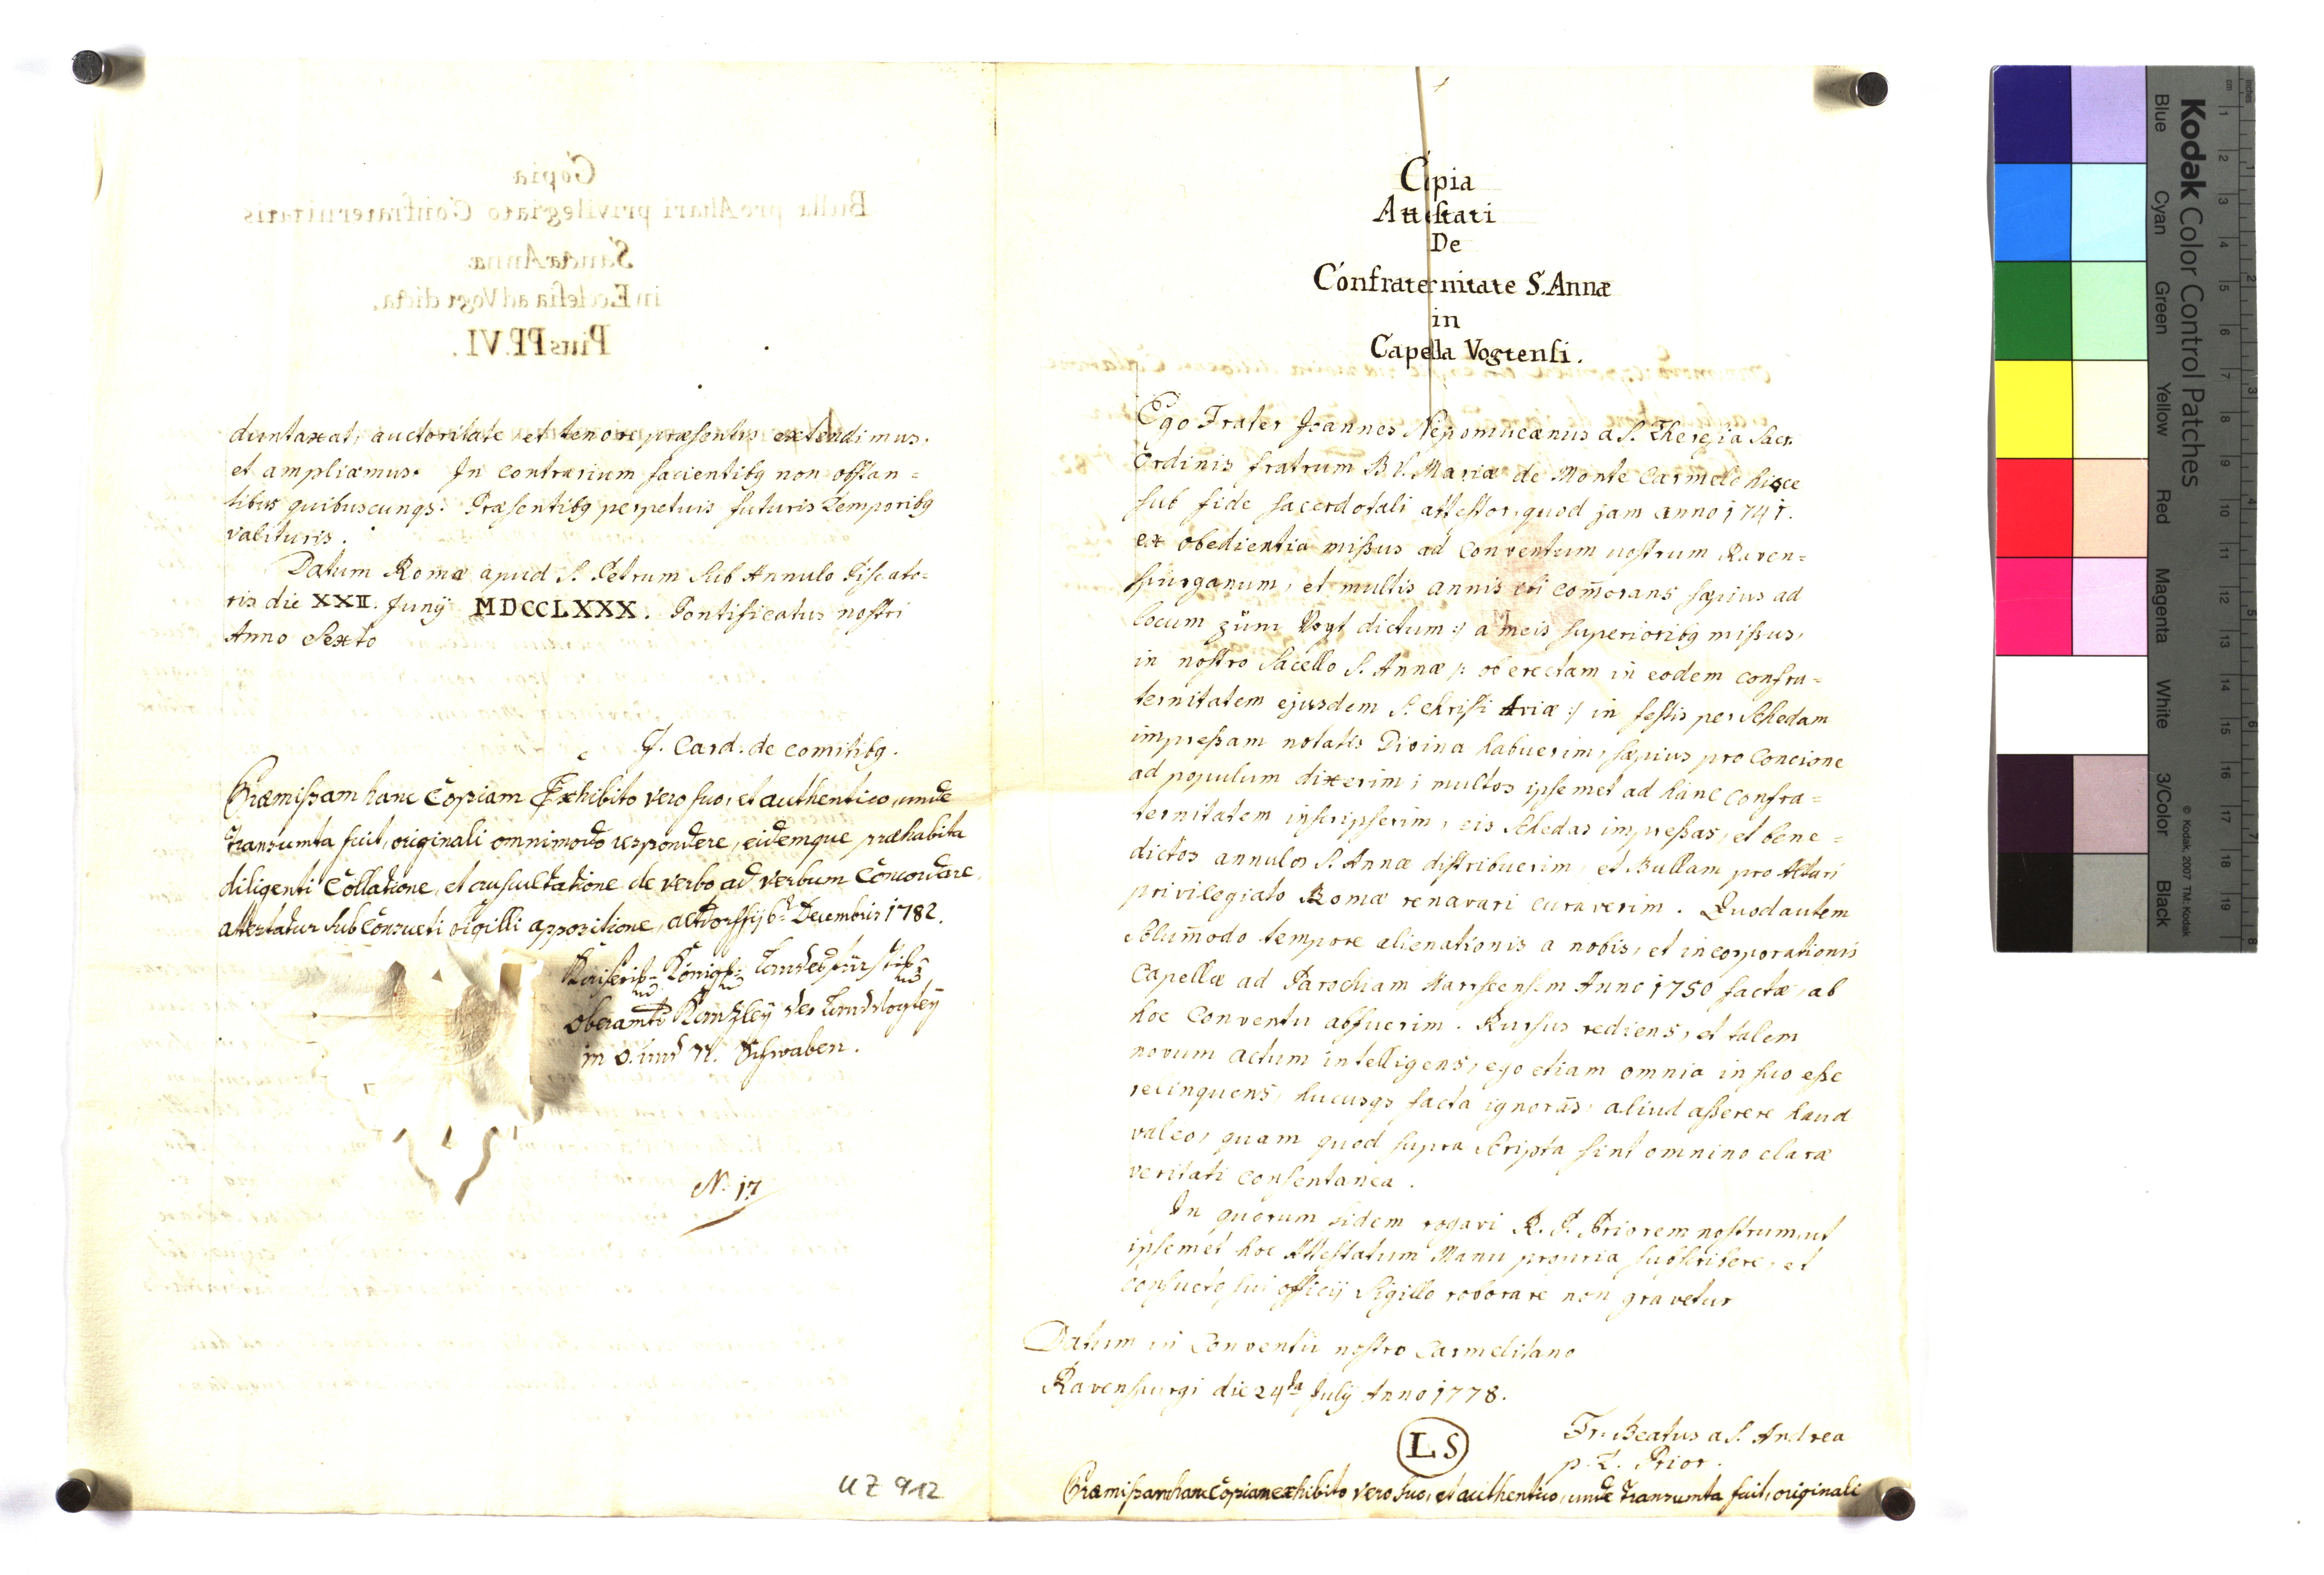 duntaxat, auctoritate et tenore præsentis extendimus.
et ampliamus. In contrarium facientibꝫ non obstan=
tibus quibuscunqꝫ. Præsentibꝫ perpetuis futuris Temporibꝫ
valituris.
Datum Romæ apud S. Petrum sub Annulo Piscato=
ris die XXII. Junÿ MDCCLXXX. Pontificatus nostri
Anno Sexto
J. Card. de comitibꝫ.
Præmißam hanc Copiam Exhibito vero suo, et authentico, unde
Transumta fuit, originali omnimodo respondere, eidemque præhabita
diligenti Collatione, et auscultatione de verbo ad verbum Concordare
attestatur sub Consueti sigilli appositione, Altdorffÿ 6t Decembris 1782.
Kaiserl= Königl= Landesfürstl=
Oberamts Kanzleÿ der Landvogteÿ
in O. und N. Schwaben.
N. 17
UZ 912
Copia
Attestati
De
Confraternitate S. Annæ
in
Capella Vogtensi.
Ego Frater Joannes Nepomucænus a S. Theresia Sacr.
Ordinis fratrum B V. Mariæ de Monte Carmelo hisce
sub fide sacerdotali attestor, quod jam anno 1741.
ex obedientia mißus ad Conventum nostrum Raven=
spurganum, et multis annis ibi com̄orans sæpius ad
locum züm Vogt dictum :/ a meis superioribꝫ mißus,
in nostro Sacello S. Annæ /: ob erectam in eodem confra=
ternitatem ejusdem S. Christi Aviæ :/ in festis per Schedam
impreßam notatis Divina habuerim, sæpius pro Concione
ad populum dixerim; multos ipsemet ad hanc Confra=
ternitatem inscripserim, eis Schedas impreßas, et bene=
dictos annulos S. Annæ distribuerim, et Bullam pro Altari
privilegiato Romæ renovari curaverim. Quod autem
Solum̄odo tempore alienationis a nobis, et incorporationis
Capellæ ad Parochiam Anno 1750 factæ, ab
hoc Conventu abfuerim. Rursus rediens, et talem
novum actum intelligens, ego etiam omnia in suo eße
relinquens, hucusqꝫ facta ignorās, aliud aßerere haud
valeo, quam quod supra Scripta sint omnino claræ
veritati consentanea.
In quorum fidem rogavi R. P. Priorem nostrum, ut
ipsemet hoc Attestatum Manu propria subscribere, et
consueto sui officÿ Sigillo roborare non gravetur
Datum in Conventu nostro Carmelitano
Ravenspurgi die 24ta Julÿ Anno 1778.
L S
Fr. Beatus a S. Andrea
p. t. Prior.
Præmißam hanc Copiam exhibito vero suo, et authentico, unde Transumta fuit, originali